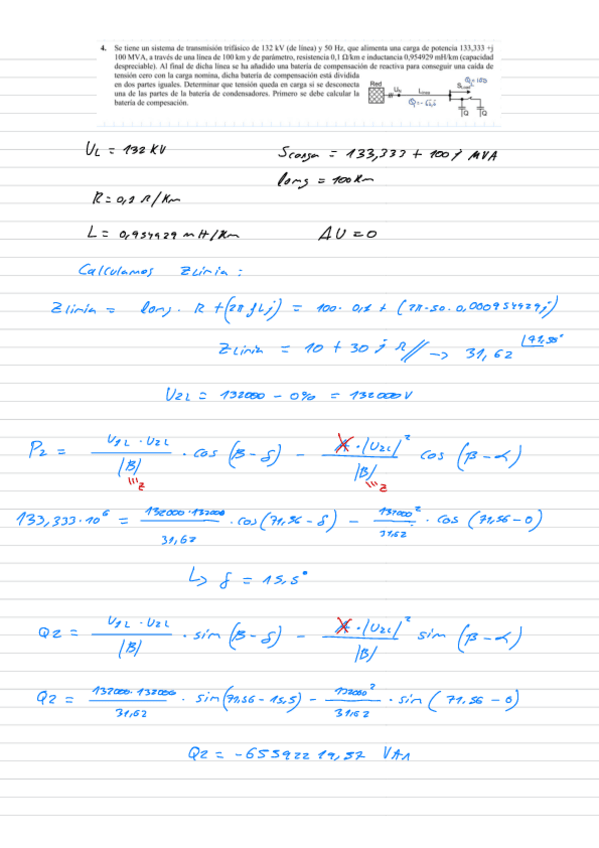 4. Se tiene un sistema de transmisión trifásico de 132 kV (de línea) y 50 Hz, que alimenta una carga de potencia 133,333 +j
100 MVA, a través de una línea de 100 km y de parámetro, resistencia 0,1 Ω/km e inductancia 0,954929 mH/km (capacidad
despreciable). Al final de dicha línea se ha añadido una batería de compensación de reactiva para conseguir una caída de
tensión cero con la carga nomina, dicha batería de compensación está dividida
en dos partes iguales. Determinar que tensión queda en carga si se desconecta
una de las partes de la batería de condensadores. Primero se debe calcular la
batería de compesación.
Red
Línea
Q
Q
UL = 132 KV
Scarga = 133,333 + 100 j MVA
long = 100 Km
R = 0,1 Ω/Km
L = 0,954929 mH/Km
ΔU = 0
Calculamos Zlinia:
Zlinia = long · R + (2π f L j) = 100 · 0,1 + (2π·50·0,000954929j)
Zlinia = 10 + 30 j Ω // → 31,62 |71,56°
U2L = 132000 - 0% = 132000 V
P2 = U1L · U2L / |B| · cos (β - δ) - A · |U2L|² / |B| cos (β - α)
Z
Z
133,333·10⁶ = 132000·132000 / 31,62 · cos(71,56 - δ) - 132000² / 31,62 · cos (71,56 - 0)
↳ δ = 15,5°
Q2 = U1L · U2L / |B| · sin (β - δ) - A · |U2L|² / |B| sin (β - α)
Q2 = 132000·132000 / 31,62 · sin(71,56 - 15,5) - 132000² / 31,62 · sin (71,56 - 0)
Q2 = -65592219,57 VAr